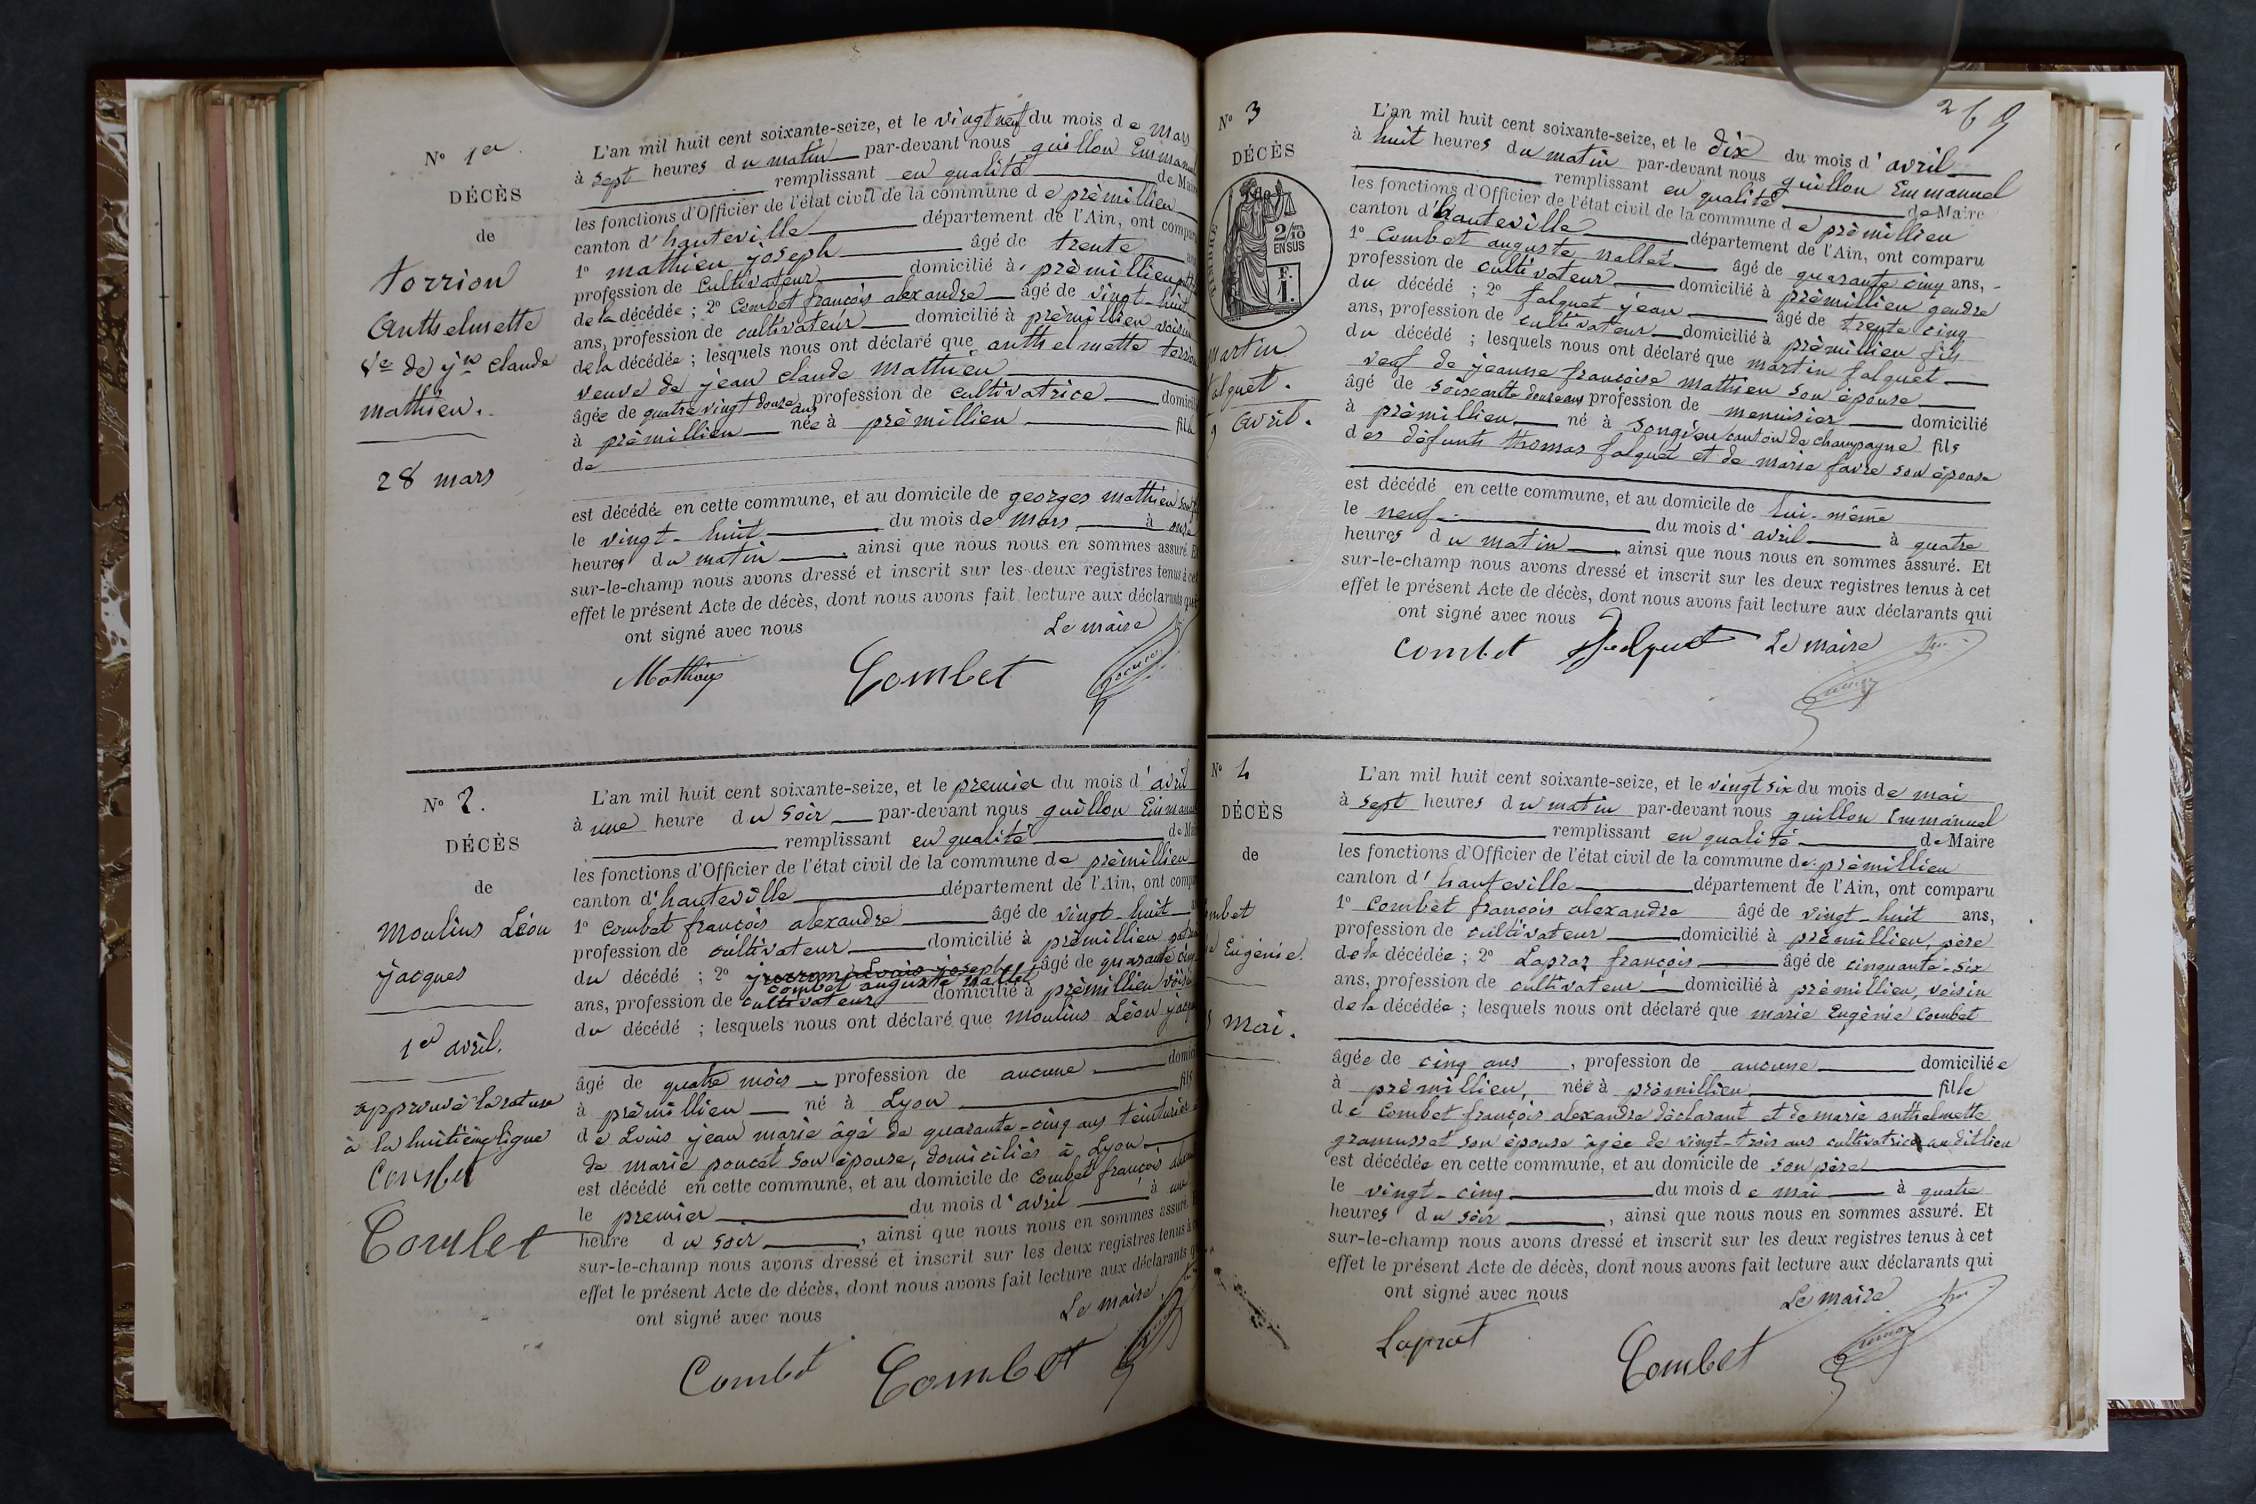 N° 1er
DÉCÈS
de
torrion
Anthelmette
Ve de jn claude
mathieu.
28 mars
L'an mil huit cent soixante-seize, et le vingt neuf du mois de Mars
à sept heures du matin par-devant nous guillon Emmanuel
remplissant en qualité de Maire
les fonctions d'Officier de l'état civil de la commune de prèmillieu
canton d'hauteville département de l'Ain, ont comparu
1° mathieu joseph âgé de trente
profession de cultivateur domicilié à prèmillieu
de la décédée ; 2° Combet françois alexandre âgé de vingt-huit
ans, profession de cultivateur domicilié à prèmillieu voisin
de la décédée ; lesquels nous ont déclaré que anthelmette torrion
veuve de jean claude Mathieu
âgée de quatre vingt douze ans profession de cultivatrice
à prèmillieu née à prèmillieu
de
est décédée en cette commune, et au domicile de georges mathieu
le vingt-huit du mois de Mars à onze
heures du matin, ainsi que nous nous en sommes assuré. Et
sur-le-champ nous avons dressé et inscrit sur les deux registres tenus à cet
effet le présent Acte de décès, dont nous avons fait lecture aux déclarants qui
ont signé avec nous Le maire
Mathieu Combet
N° 2.
DÉCÈS
de
Moulins Léon
jacques
1er avril.
approuvé la rature
à la huitième ligne
Combet
Combet
L'an mil huit cent soixante-seize, et le premier du mois d'avril
à une heure du soir par-devant nous guillon Emmanuel
remplissant en qualité de Maire
les fonctions d'Officier de l'état civil de la commune de prèmillieu
canton d'hauteville département de l'Ain, ont comparu
1° combet françois alexandre âgé de vingt-huit
profession de cultivateur domicilié à prèmillieu
du décédé ; 2° âgé de quarante cinq
combet auguste nallet
ans, profession de cultivateur domicilié à prèmillieu voisin
du décédé ; lesquels nous ont déclaré que Moulins Léon jacques
âgé de quatre mois profession de aucune
à prèmillieu né à Lyon fils
de Louis jean marie âgé de quarante-cinq ans teinturier
de marie poucet son épouse, domiciliés à Lyon
est décédé en cette commune, et au domicile de combet françois
le premier du mois d'avril à une
heure du soir, ainsi que nous nous en sommes assuré. Et
sur-le-champ nous avons dressé et inscrit sur les deux registres tenus à cet
effet le présent Acte de décès, dont nous avons fait lecture aux déclarants qui
ont signé avec nous Le maire
Combet Combet
269
N° 3
DÉCÈS
TIMBRE
2/10
EN SUS
F.
1.
martin
falquet.
9 avril.
L'an mil huit cent soixante-seize, et le dix du mois d'avril
à huit heures du matin par-devant nous guillon Emmanuel
remplissant en qualité de Maire
les fonctions d'Officier de l'état civil de la commune de prèmillieu
canton d'hauteville département de l'Ain, ont comparu
1° Combet auguste nallet âgé de quarante cinq ans,
profession de cultivateur domicilié à prèmillieu gendre
du décédé ; 2° falquet jean âgé de trente cinq
ans, profession de cultivateur domicilié à prèmillieu fils
du décédé ; lesquels nous ont déclaré que martin falquet
veuf de jeanne françoise mathieu son épouse
âgé de soixante douze ans profession de menuisier domicilié
à prèmillieu né à Songieu canton de champagne fils
des défunts thomas falquet et de marie favre son épouse
est décédé en cette commune, et au domicile de lui-même
le neuf du mois d'avril à quatre
heures du matin, ainsi que nous nous en sommes assuré. Et
sur-le-champ nous avons dressé et inscrit sur les deux registres tenus à cet
effet le présent Acte de décès, dont nous avons fait lecture aux déclarants qui
ont signé avec nous
combet Falquet Le maire
N° 4
DÉCÈS
de
Eugénie.
mai.
L'an mil huit cent soixante-seize, et le vingt six du mois de mai
à sept heures du matin par-devant nous guillon Emmanuel
remplissant en qualité de Maire
les fonctions d'Officier de l'état civil de la commune de prèmillieu
canton d'hauteville département de l'Ain, ont comparu
1° Combet françois alexandre âgé de vingt-huit ans,
profession de cultivateur domicilié à prèmillieu, père
de la décédée ; 2° Lapraz françois âgé de cinquante-six
ans, profession de cultivateur domicilié à prèmillieu, voisin
de la décédée ; lesquels nous ont déclaré que marie Eugènie Combet
âgée de cinq ans, profession de aucune domiciliée
à prèmillieu, née à prèmillieu fille
de Combet françois alexandre déclarant et de marie anthelmette
gramusset son épouse âgée de vingt-trois ans cultivatrice au dit lieu
est décédée en cette commune, et au domicile de son père
le vingt-cinq du mois de mai à quatre
heures du soir, ainsi que nous nous en sommes assuré. Et
sur-le-champ nous avons dressé et inscrit sur les deux registres tenus à cet
effet le présent Acte de décès, dont nous avons fait lecture aux déclarants qui
ont signé avec nous Le maire
Laprat Combet